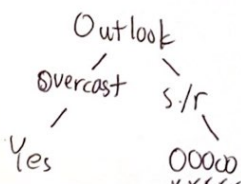 Outlook
Overcast s./r
Yes OOOOO